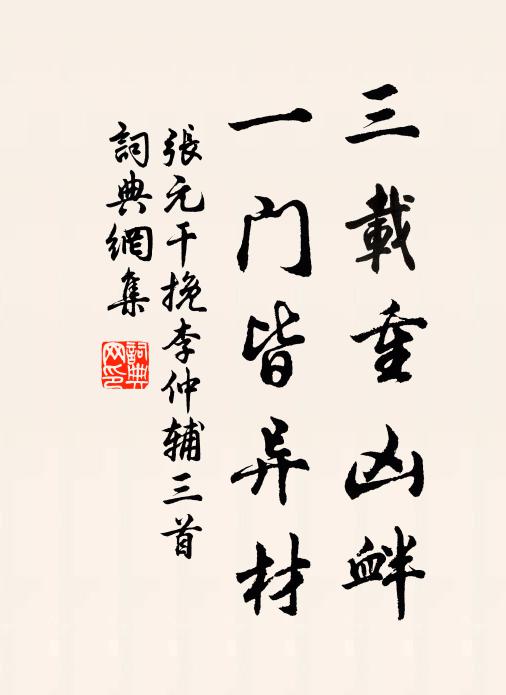 三載重凶衅
一门皆异材
張元干挽李仲辅三首
詞典網集
詞典
网印